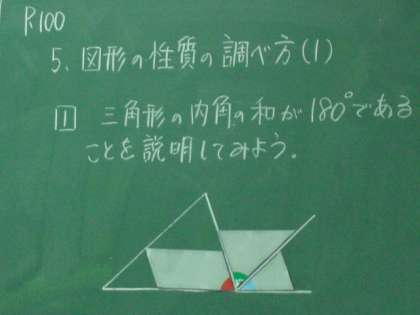 P.100
5、図形の性質の調べ方(1)
1 三角形の内角の和が180°である
ことを説明してみよう。